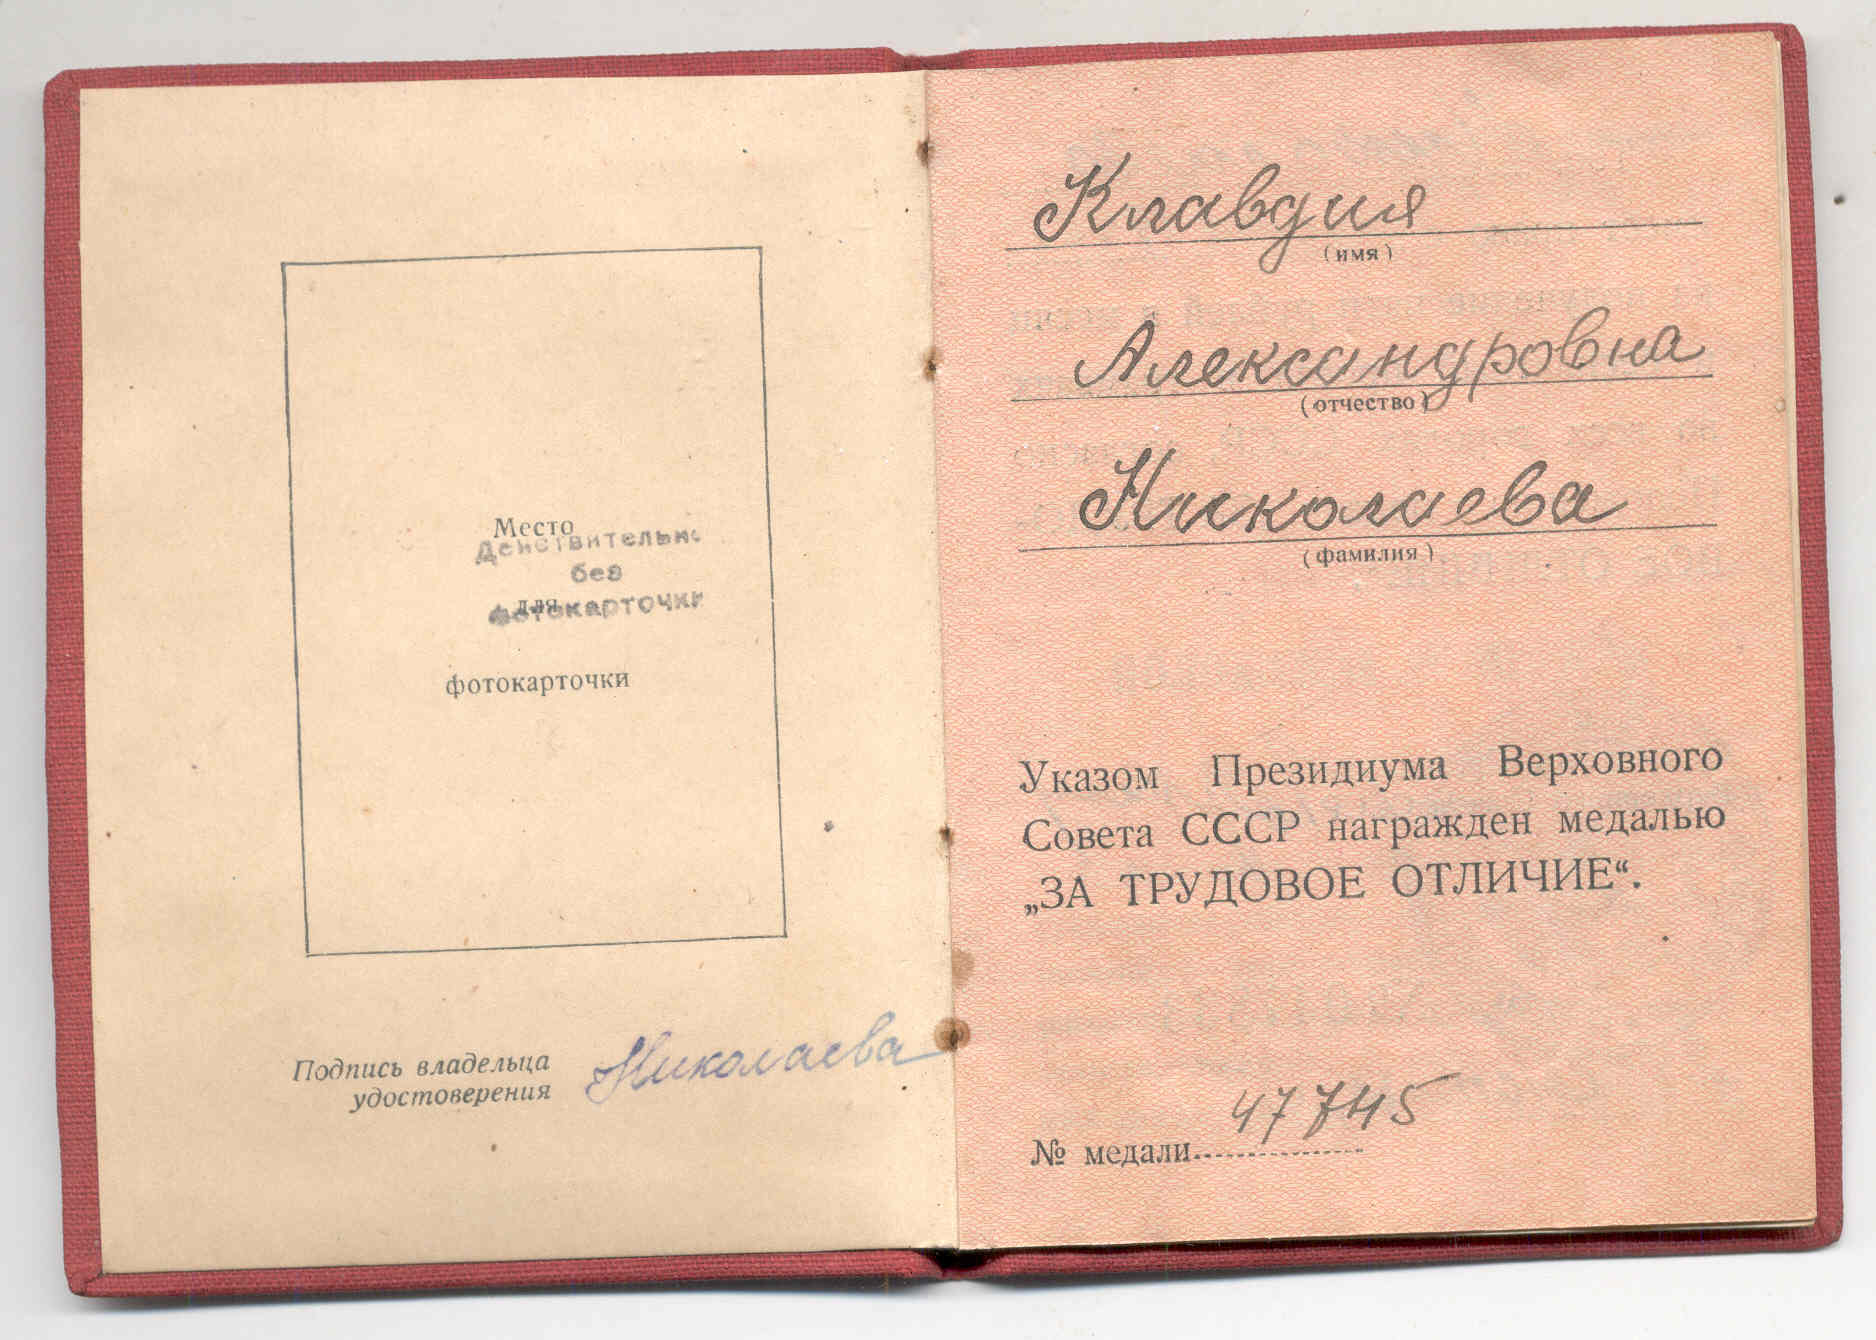 Место
Действительно
без
для
фотокарточки
фотокарточки
Подпись владельца
удостоверения
Николаева
Клавдия
(имя)
Александровна
(отчество)
Николаева
(фамилия)
Указом Президиума Верховного
Совета СССР награжден медалью
„ЗА ТРУДОВОЕ ОТЛИЧИЕ“.
№ медали 47745